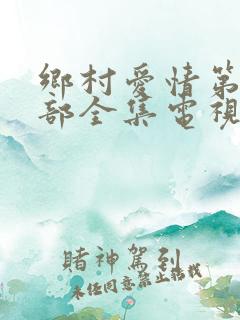 鄉村愛情第
部全集電視
賭神駕到
未任同意禁止轉載